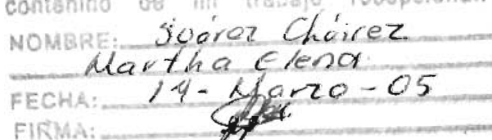 contenido de mi trabajo recepcional.
NOMBRE: Suárez Cháirez
Martha Elena
FECHA: 14-Marzo-05
FIRMA: